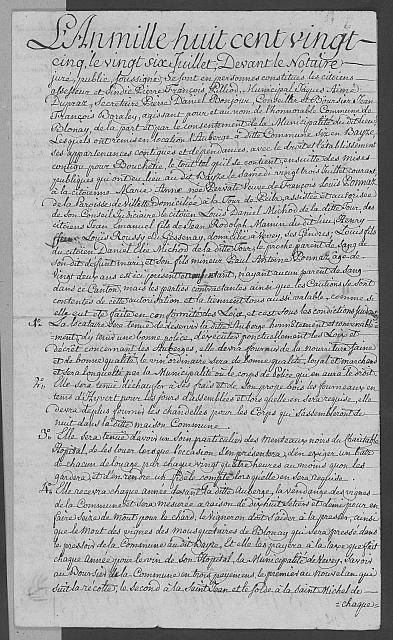 L'An mille huit cent vingt
cinq, le vingt six Juillet, Devant le Notaire
juré public soussigné se sont en personnes constitués les citoiens
assesseur et Sindic Pierre François Pilliod, Municipal Jaques Aimé
Dupraz, Secretaire Pierre Daniel Bonjour, Conseiller et Boursier Jean
François agissant pour et au nom de l'honnorable Commune de
Blonay, de la part et par le consentement de la Municipalité du dit lieu,
Lesquels ont remis en location l'Auberge à dite Commune Sise en Bayse,
ses appartenances contigues et dépendances, avec le droit et l'établissement
conçus pour Boucherie, le tout tel qu'il se contient, ensuite des mises
publiques qui ont eu lieu au dit Bayse le Samedi vingt trois Juillet courant,
à la citoienne Marie Anne née veuve de François Louis
de la Paroisse de Villette Domiciliée à la Tour de Peilz, assistée et autorisée
de son Conseil Judiciaire le citoien Louis Daniel Michod de la dite Tour, des
citoiens Jean Emanuel fils de Jean Rodolph Mamin du dit lieu, Henry
Louis Roussy de Lessonay, domicilié à Vevey, ses Gendres, Louis fils
du citoien Daniel Elie Michod de la dite Tour, le proche parent de Sang de
son dit défunt mari, et son fils mineur Paul Antoine agé de
vingt deux ans est ici présent et n'ayant aucun parent de sang
dans ce Canton, mais les parties contractantes ainsi que les Cautions se sont
contentés de cette autorisation et la tiennent tous aussi valable, comme si
elle eut été faite en conformité des Loix, et c'est sous les conditions suivantes
1º. La locataire sera tenue de desservir la dite Auberge honnêtement et convenable
ment, d'y tenir une bonne police, d'exécuter ponctuellement les Loix et
décrêts concernant les Auberges, elle devra fournir de la nourriture saine
et de bonne qualité, le vin ordinaire sera de bonne qualité, loyal et marchand
et sera longuetté par la Municipalité ou le corps de Police qui en aura le droit.
2º. Elle sera tenue d'échauffer à ses frais et de son propre bois les fourneaux en
tems d'hyvert pour les jours d'assemblées et lors qu'elle en sera requise, elle
devra de plus fournir les chandelles pour les Corps qui s'assembleront de
nuit dans la dite maison Commune
3º. Elle sera tenue d'avoir un soin particulier des morceaux noirs du Charitable
Hopital, de les louer lorsque l'occasion s'en présentera, d'en exiger un batz
de chacun de louage par chaque vingt quatre heures au moins qu'on les
gardera et d'en rendre un fidèle compte lorsqu'elle en sera requise.
4º. Elle recevra chaque année devant la dite Auberge, la vendange des vignes
de la Commune et sera mesurée à raison de dix huit Setiers et demi pour en
faire Seize de Mout pour le Char, le vigneron doit s'aider à le presser, ainsi
que le Mout des vignes des mousquetaires de Blonay qui sera pressé dans
le pressoir de la Commune au dit Bayse, et elle les payera à la taxe que fait
chaque année pour le vin de son Hopital, la Municipalité de Vevey, Savoir
au Boursier de la Commune en trois payemens le premier au nouvel an qui
suit la récolte, le second à la Saint Jean et le solde à la Saint Michel de
= chaque =